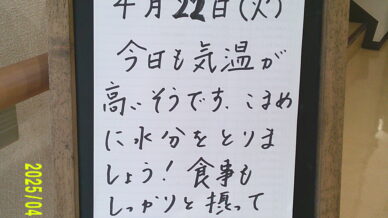 4月22日(火)
今日も気温が
高いそうです、こまめ
に水分をとりま
しょう!食事も
しっかりと摂って
2025/04